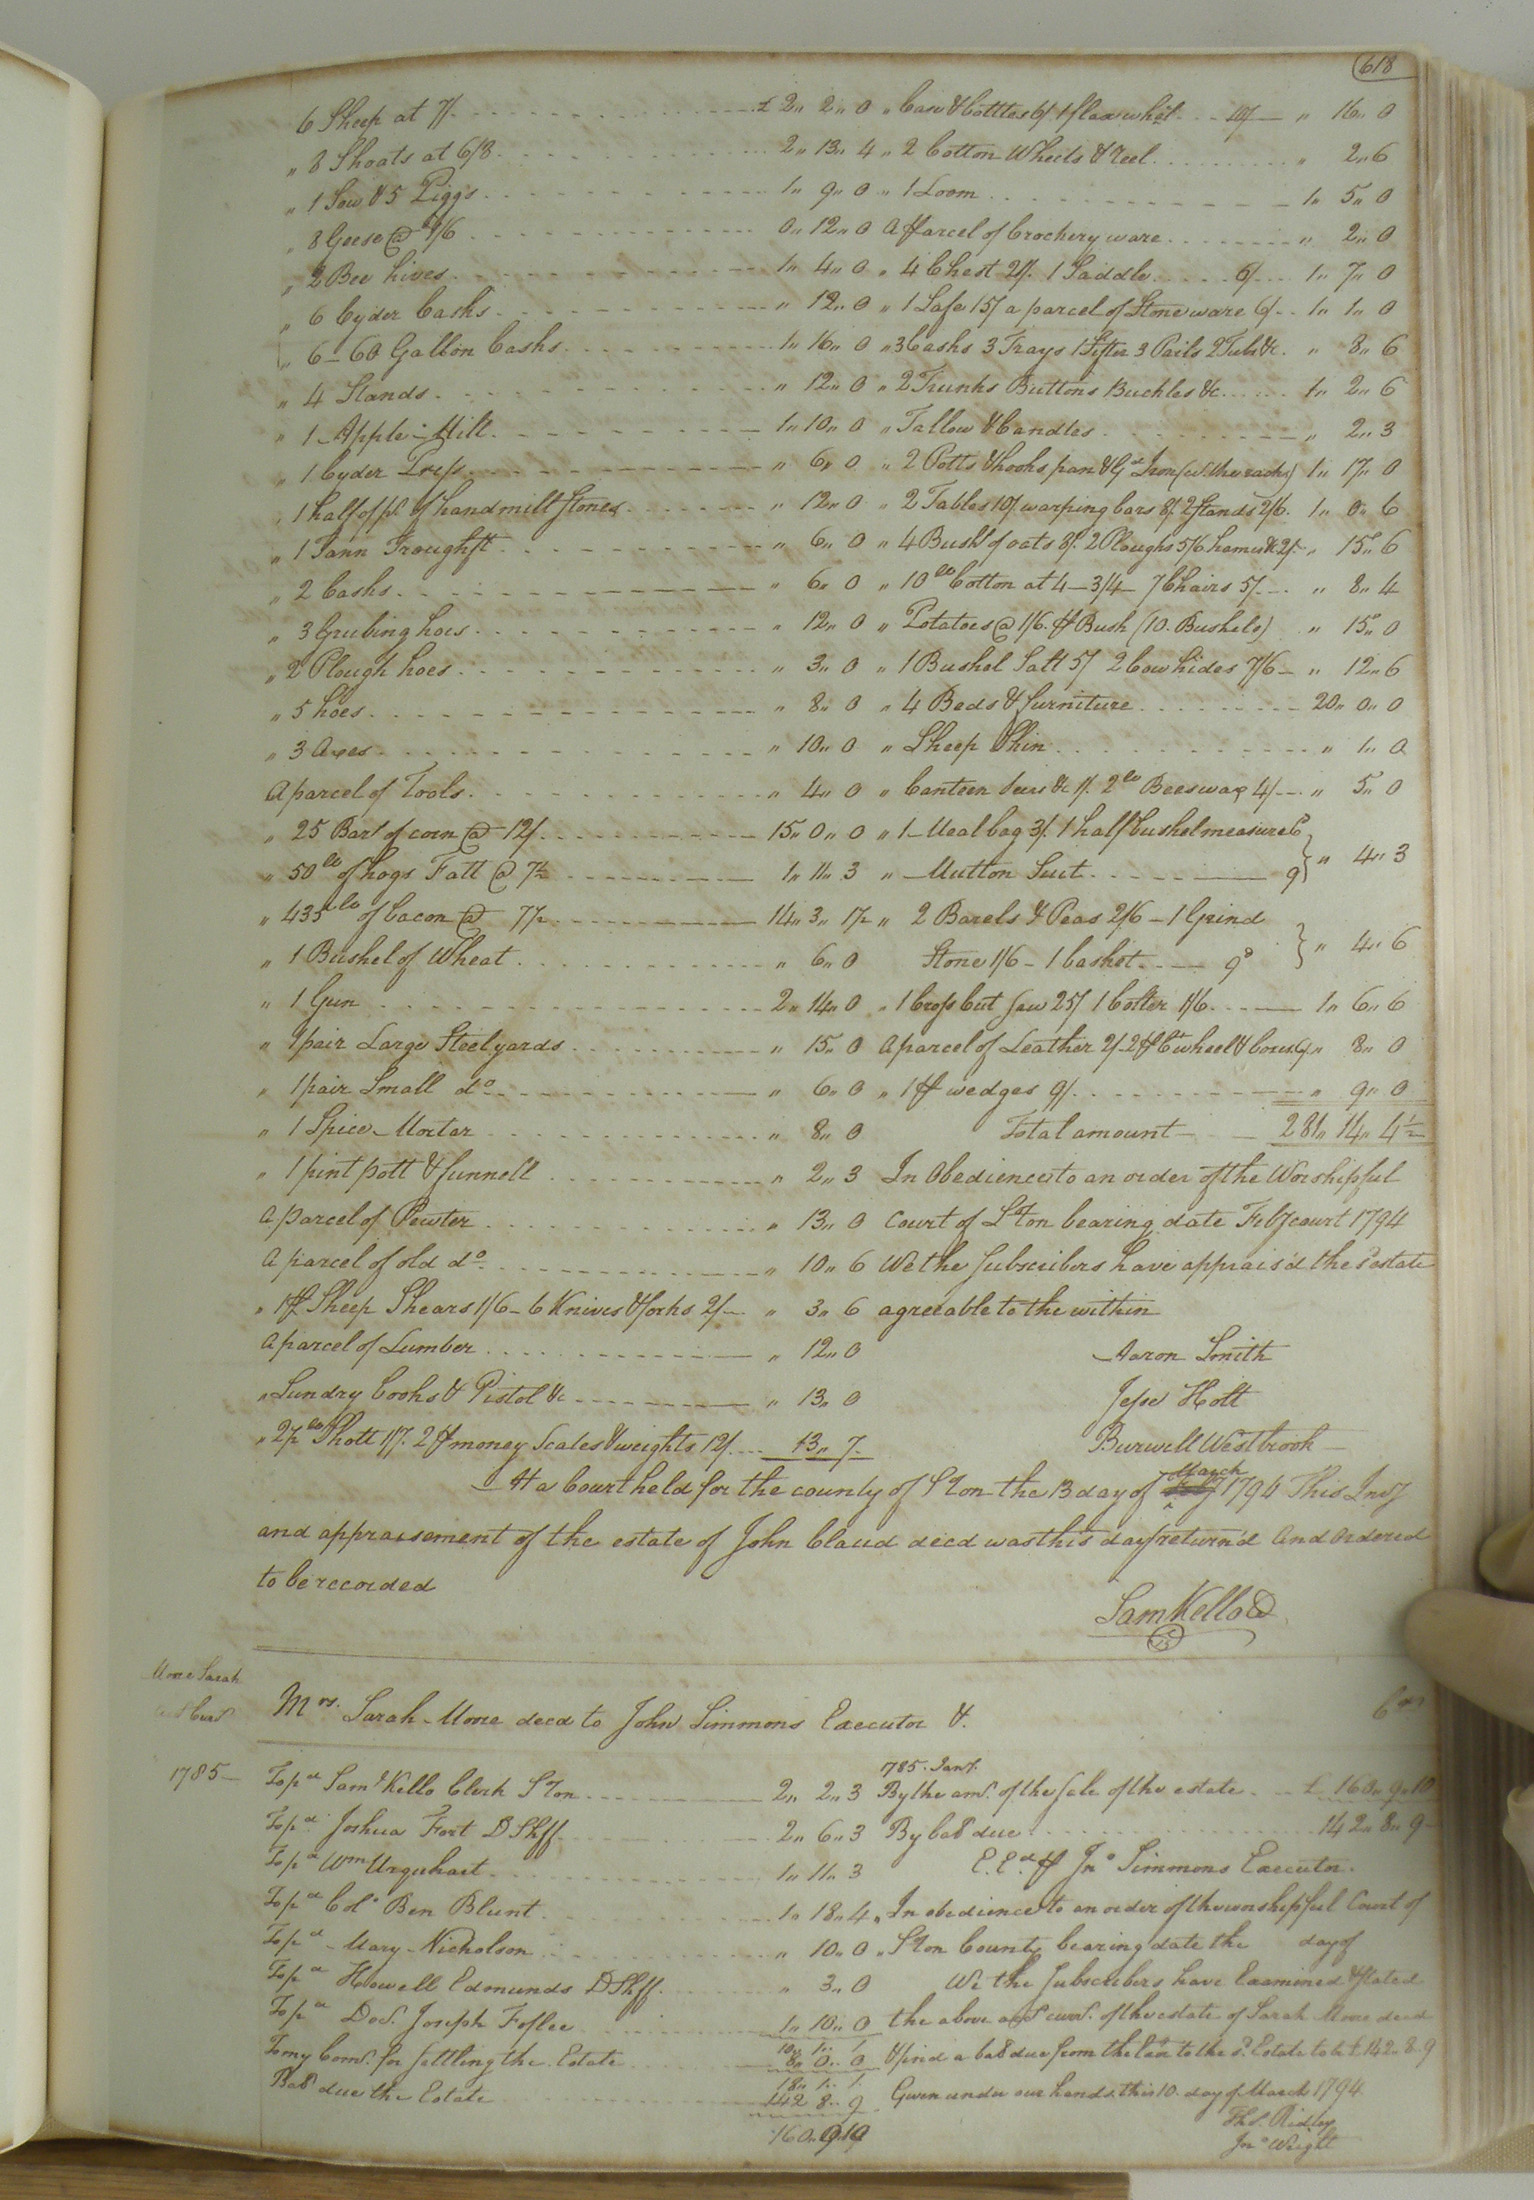 618
6 Sheep at 7/. £ 2,, 2,, 0
,, 8 Shoats at 6/8. 2,, 13,, 4
,, 1 Sow & 5 Piggs 1,, 9,, 0
,, 8 Geese @ 1/6 0,, 12,, 0
,, 2 Bee hives. 1,, 4,, 0
,, 6 Cyder Casks ,, 12,, 0
,, 6 - 60 Gallon Casks. 1,, 16,, 0
,, 4 Stands. ,, 12,, 0
,, 1 - Apple - Mill. 1,, 10,, 0
,, 1 Cyder Press. ,, 6,, 0
,, 1 half of pr. of handmill Stones ,, 12,, 0
,, 1 Tann Trough ,, 6,, 0
,, 2 Casks. ,, 6,, 0
,, 3 Grubing hoes ,, 12,, 0
,, 2 Plough hoes ,, 3,, 0
,, 5 hoes. ,, 8,, 0
,, 3 Axes ,, 10,, 0
A parcel of Tools. ,, 4,, 0
,, 25 Barls of corn @ 12/. 15,, 0,, 0
,, 50 lb of hogs Fatt @ 7½ 1,, 11,, 3
,, 435 lb of bacon @ 7½ 14,, 3,, 1½
,, 1 Bushel of Wheat. ,, 6,, 0
,, 1 Gun 2,, 14,, 0
,, 1 pair Large Steelyards ,, 15,, 0
,, 1 pair Small do. ,, 6,, 0
,, 1 Spice - Mortar ,, 8,, 0
,, 1 pint pott & funnell ,, 2,, 3
A parcel of Pewter ,, 13,, 0
A parcel of old do. ,, 10,, 6
,, 1 pr Sheep Shears 1/6 - 6 Knives & forks 2/- ,, 3,, 6
A parcel of Lumber ,, 12,, 0
,, Sundry books & Pistol &c ,, 13,, 0
,, 2½ lb Shott 1/7. 2 pr money Scales & weights 12/. 13,, 7.
,, Case & bottles 6/ 1 flax wheel 10/ ,, 16,, 0
,, 2 Cotton Wheels & reel. ,, 2,, 6
,, 1 Loom 1,, 5,, 0
A parcel of Crockery ware ,, 2,, 0
,, 4 Chest 21/. 1 Saddle 6/ 1,, 7,, 0
,, 1 Safe 15/ a parcel of Stone ware 6/ 1,, 1,, 0
,, 3 Casks 3 Trays 1 Sifter 3 Pails 2 Tubs &c. ,, 8,, 6
,, 2 Trunks Buttons Buckles &c 1,, 2,, 6
,, Tallow & Candles ,, 2,, 3
,, 2 Potts & hooks pan & Gd Iron (with racks) 1,, 17,, 0
,, 2 Tables 10/ warping bars 8/ 2 Stands 2/6. 1,, 0,, 6
,, 4 Bushl of oats 8/. 2 Ploughs 5/6 hames &c 2/- ,, 15,, 6
,, 10 lb Cotton at 4 - 3/4 - 7 Chairs 5/- ,, 8,, 4
,, Potatoes @ 1/6. pr Bush (10. Bushels) ,, 15,, 0
,, 1 Bushel Salt 5/ 2 Cow hides 7/6 - ,, 12,, 6
,, 4 Beds & furniture 20,, 0,, 0
,, Sheep Skin ,, 1,, 0
,, Canteen &c 1/. 2 lb Beeswax 4/- ,, 5,, 0
,, 1 - Meal bag 3/. 1 half bushel measure 6
,, - Mutton Suit. 9 } ,, 4,, 3
,, 2 Barels & Peas 2/6 - 1 Grind
Stone 1/6 - 1 basket 9d } ,, 4,, 6
,, 1 Cross Cut Saw 25/ 1 bolter 1/6. 1,, 6,, 6
A parcel of Leather 2/- 2 pr Ct wheel & boxes 6/ ,, 8,, 0
,, 1 pr wedges 9/. ,, 9,, 0
Total amount 281,, 14,, 4½
In Obedience to an order of the Worshipful
Court of S'ton bearing date Feby court 1794
We the Subscribers have apprais'd the sd estate
agreeable to the within
Aaron Smith
Jesse Holt
Burwell Westbrook
At a Court held for the county of S'ton the 13 day of March 1794 This Invy
and appraisement of the estate of John Claud decd was this day return'd And Ordered
to be recorded
Sam Kello CC
Moore Sarah
Mrs. Sarah Moore decd to John Simmons Executor &.
1785 -
To pd Saml Kello Clerk S'ton 2,, 2,, 3
To pd Joshua Fort D Shff. 2,, 6,, 3
To pd Wm Urquhart 1,, 11,, 3
To pd Colo Ben Blunt 1,, 18,, 4
To pd Mary Nicholson ,, 10,, 0
To pd Howell Edmunds D Shff. ,, 3,, 0
To pd Doc. Joseph Foslee 1,, 10,, 0
10,, 1,, 1
To my Coms. for settling the Estate 8,, 0,, 0
18,, 1,, 1
Bal due the Estate 142 8,, 9
160,, 9,, 10
1785. Jany.
By the amt. of the Sale of the estate £ 160,, 9,, 10
By bal due 142,, 8,, 9
E. Ed pr Jno Simmons Executor.
,, In obedience to an order of the worshipful Court of
,, S'ton County bearing date the day of
We the Subscribers have Examined & Stated
the above acct currt. of the estate of Sarah Moore decd
& find a bal due from the Exor to the sd Estate to be £ 142,, 8,, 9
Given under our hands this 10. day of March 1794
Ths. Ridley
Jno Wright